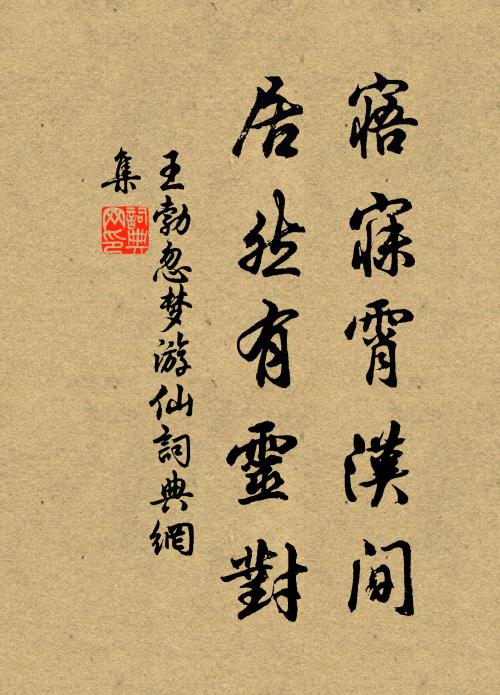 寤寐霄漢间
居然有靈對
王勃忽梦游仙詞典網
集
詞典
网印